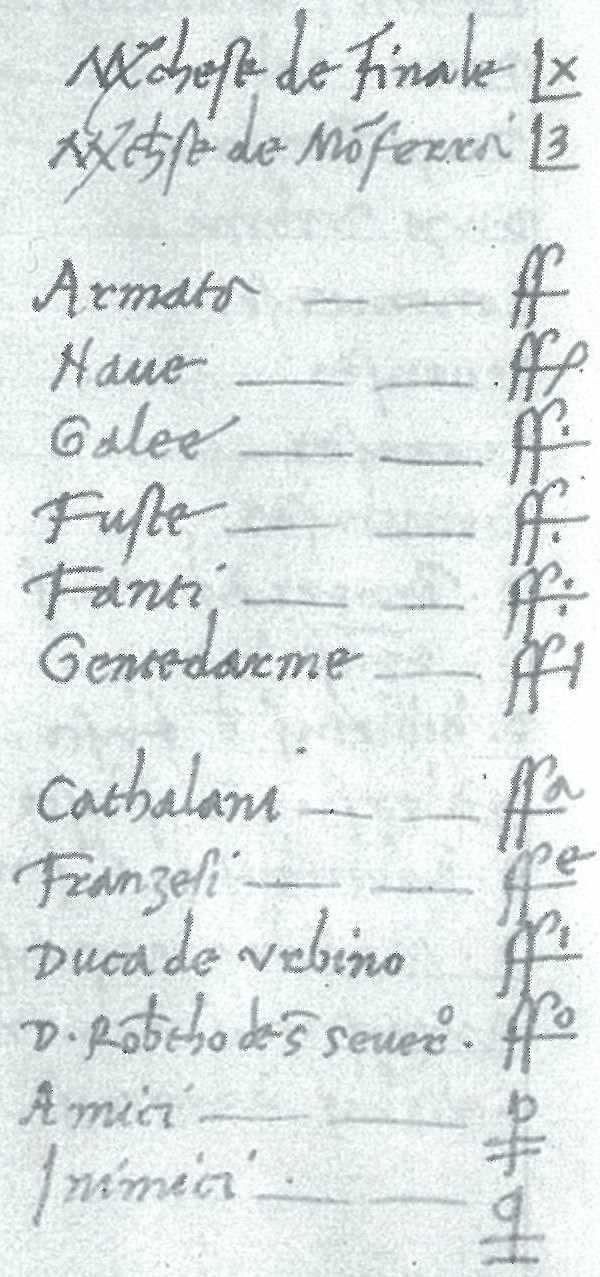 Mchese de Finale x
Mchese de Mōferra 3
Armata
Naue
Galee
Fuste
Fanti
Gentedarme
Cathalani ffa
Franzesi ffe
Duca de Vrbino ffi
D. Robtho de S Seuero. ffo
Amici
Inimici